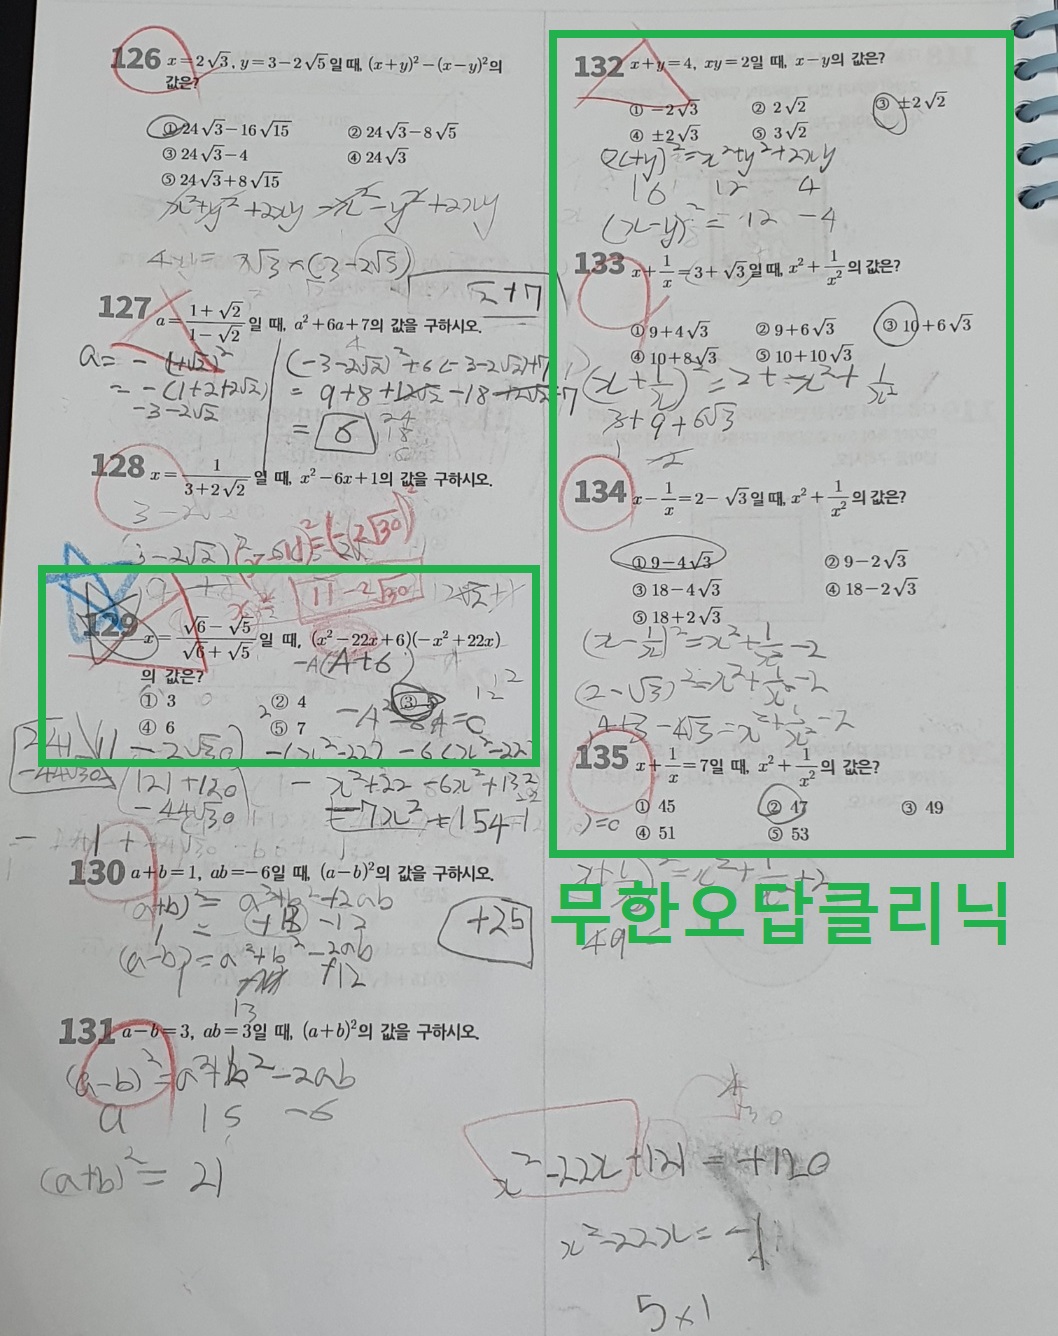 126 x=2√3, y=3−2√5일 때, (x+y)²−(x−y)²의
값은?
① 24√3−16√15 ② 24√3−8√5
③ 24√3−4 ④ 24√3
⑤ 24√3+8√15
x²+y²+2xy −x²−y²+2xy
√2+7
127 a=(1+√2)/(1−√2)일 때, a²+6a+7의 값을 구하시오.
a= −(1+√2)²
= −(1+2+2√2)
−3−2√2
(−3−2√2)²+6(−3−2√2)+7
= 9+8+12√2−18
= 6
128 x=1/(3+2√2)일 때, x²−6x+1의 값을 구하시오.
3−2√2
11−2√30
129 x=(√6−√5)/(√6+√5)일 때, (x²−22x+6)(−x²+22x)
의 값은?
① 3 ② 4 ③ 5
④ 6 ⑤ 7
−A(A+6)
241
−44√30
11−2√30
121+120
−44√30
−x²+22−6x²+132
=−7x²+154
130 a+b=1, ab=−6일 때, (a−b)²의 값을 구하시오.
(a+b)²= a²+b²+2ab
1 = +13 −12
(a−b)=a²+b²−2ab
+12
13
+25
131 a−b=3, ab=3일 때, (a+b)²의 값을 구하시오.
(a−b)²=a²+b²−2ab
a 15 −6
(a+b)²= 21
132 x+y=4, xy=2일 때, x−y의 값은?
① −2√3 ② 2√2 ③ ±2√2
④ ±2√3 ⑤ 3√2
(x+y)²=x²+y²+2xy
16 12 4
(x−y)²= 12 −4
133 x+1/x=3+√3일 때, x²+1/x²의 값은?
① 9+4√3 ② 9+6√3 ③ 10+6√3
④ 10+8√3 ⑤ 10+10√3
(x+1/x)²=2+x²+1/x²
3+9+6√3
−2
134 x−1/x=2−√3일 때, x²+1/x²의 값은?
① 9−4√3 ② 9−2√3
③ 18−4√3 ④ 18−2√3
⑤ 18+2√3
(x−1/x)²=x²+1/x²−2
(2−√3)²=x²+1/x²−2
4+3−4√3=x²+1/x²−2
135 x+1/x=7일 때, x²+1/x²의 값은?
① 45 ② 47 ③ 49
④ 51 ⑤ 53
x+1/x)²=x²+1/x²+2
49
무한오답클리닉
x²−22x+121=+120
x²−22x=−1
5×1